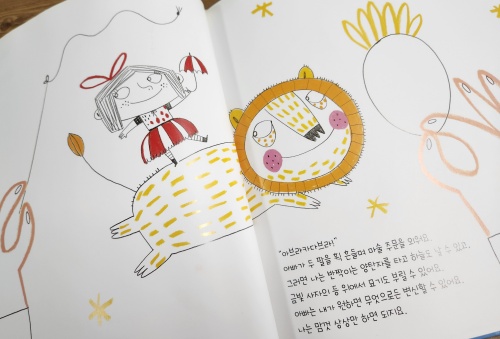 "아브라카다브라!"
아빠가 두 팔을 휙 흔들며 마술 주문을 외워요.
그러면 나는 반짝이는 양탄자를 타고 하늘도 날 수 있고,
금빛 사자의 등 위에서 묘기도 부릴 수 있어요.
아빠는 내가 원하면 무엇으로든 변신할 수 있어요.
나는 맘껏 상상만 하면 되지요.